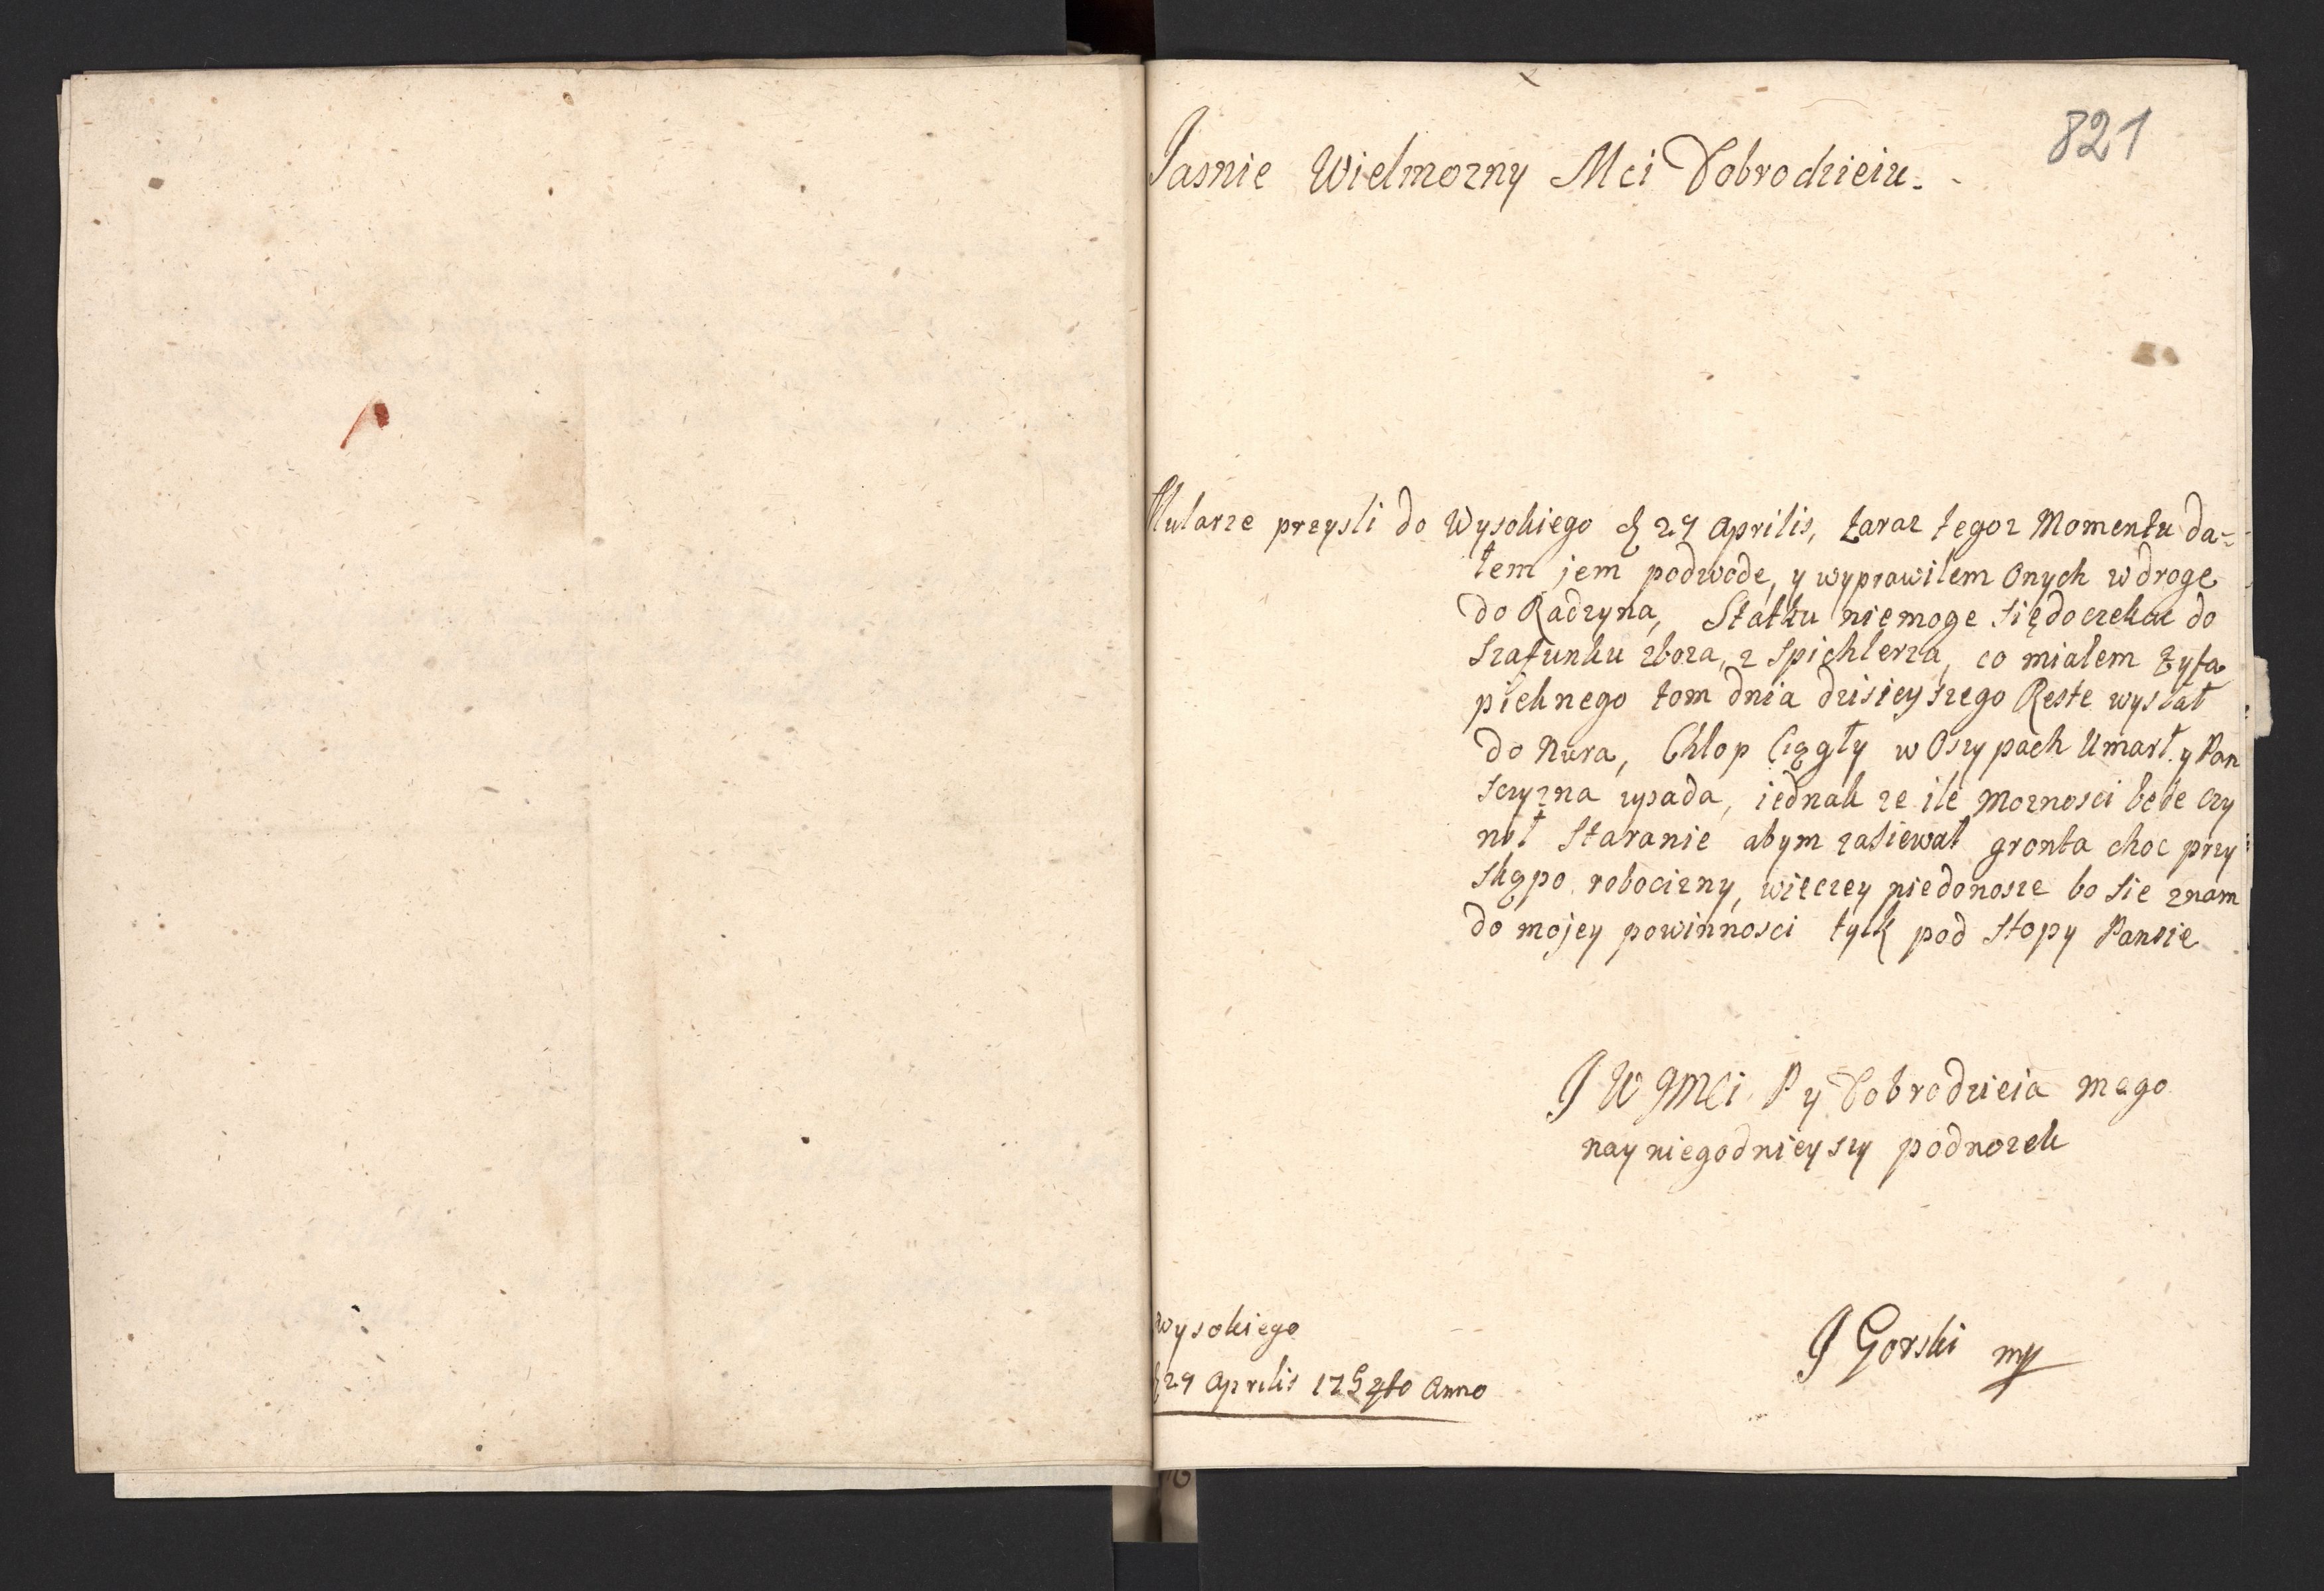 821
Jasnie Wielmozny Mci Dobrodzieiu.
Mularze przysli do Wysokiego d 29 Aprilis, zaraz tegoz Momentu da=
łem jem podwode, y wyprawilem Onych w droge
do Radzyna, Statku niemoge się doczekac do
szafunku zboza, z Spichlerza, co mialem zyta
piehnego tom dnia dzisieyszego Reste wysłał
do Nura, Chlop Ciągły w Oszypach Umarł y Pan
sczyzna upada, iednak ze ile Moznosci bede czy
nił Staranie abym zasiewał gronta choc przy
skąpo robocizny, więczey niedonosze bo sie znam
do mojey powinnosci tylk pod Stopy Panskie
J W JMCi P y Dobrodzieia mego
nayniegodnieyszy podnozek
J Gorski mp
Wysokiego
29 Aprilis Anno